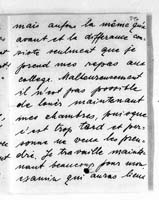 mais enfin la même qu'
avant et la différence con-
siste seulement que je
prend mes repas au
collège. Malheureusement
il n'est pas possible
de louer maintenant
mes chambres, puisque
c'est trop tard et per-
sonne ne veut les pren-
dre. Je travaille mainte-
nant beaucoup pour mon
examin qui auras lieu